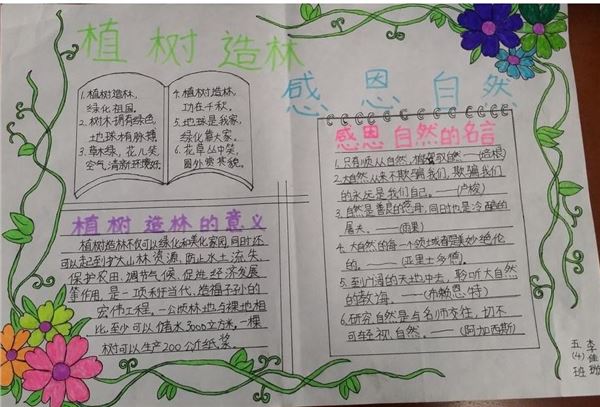 植树造林
感恩自然
1.植树造林,
绿化祖国。
2.树木拥有绿色,
地球才有脉搏
3.草木绿,花儿笑
空气清新环境好
4.植树造林,
功在千秋。
5.地球是我家,
绿化靠大家。
6.花草丛中笑,
园外赏其貌。
植树造林的意义
植树造林不仅可以绿化和美化家园,同时还
可以起到扩大山林资源,防止水土流失
保护农田、调节气候、促进经济发展
等作用,是一项利于当代、造福子孙的
宏伟工程。一公顷林地与裸地相
比,至少可以储水3000立方米,一棵
树可以生产200公斤纸浆
感恩自然的名言
1.只有顺从自然,才能驾驭自然——(培根)
2.大自然从来不欺骗我们,欺骗我们
的永远是我们自己。——(卢梭)
3.自然是善良的慈母,同时也是冷酷的
屠夫。——(雨果)
4.大自然的每一个领域都是美妙绝伦
的。——(亚里士多德)
5.到广阔的天地中去,聆听大自然
的教诲。——(布赖恩·特)
6.研究自然是与名师交往,切不
可轻视自然。——(阿加西斯)
五(4)班
李佳